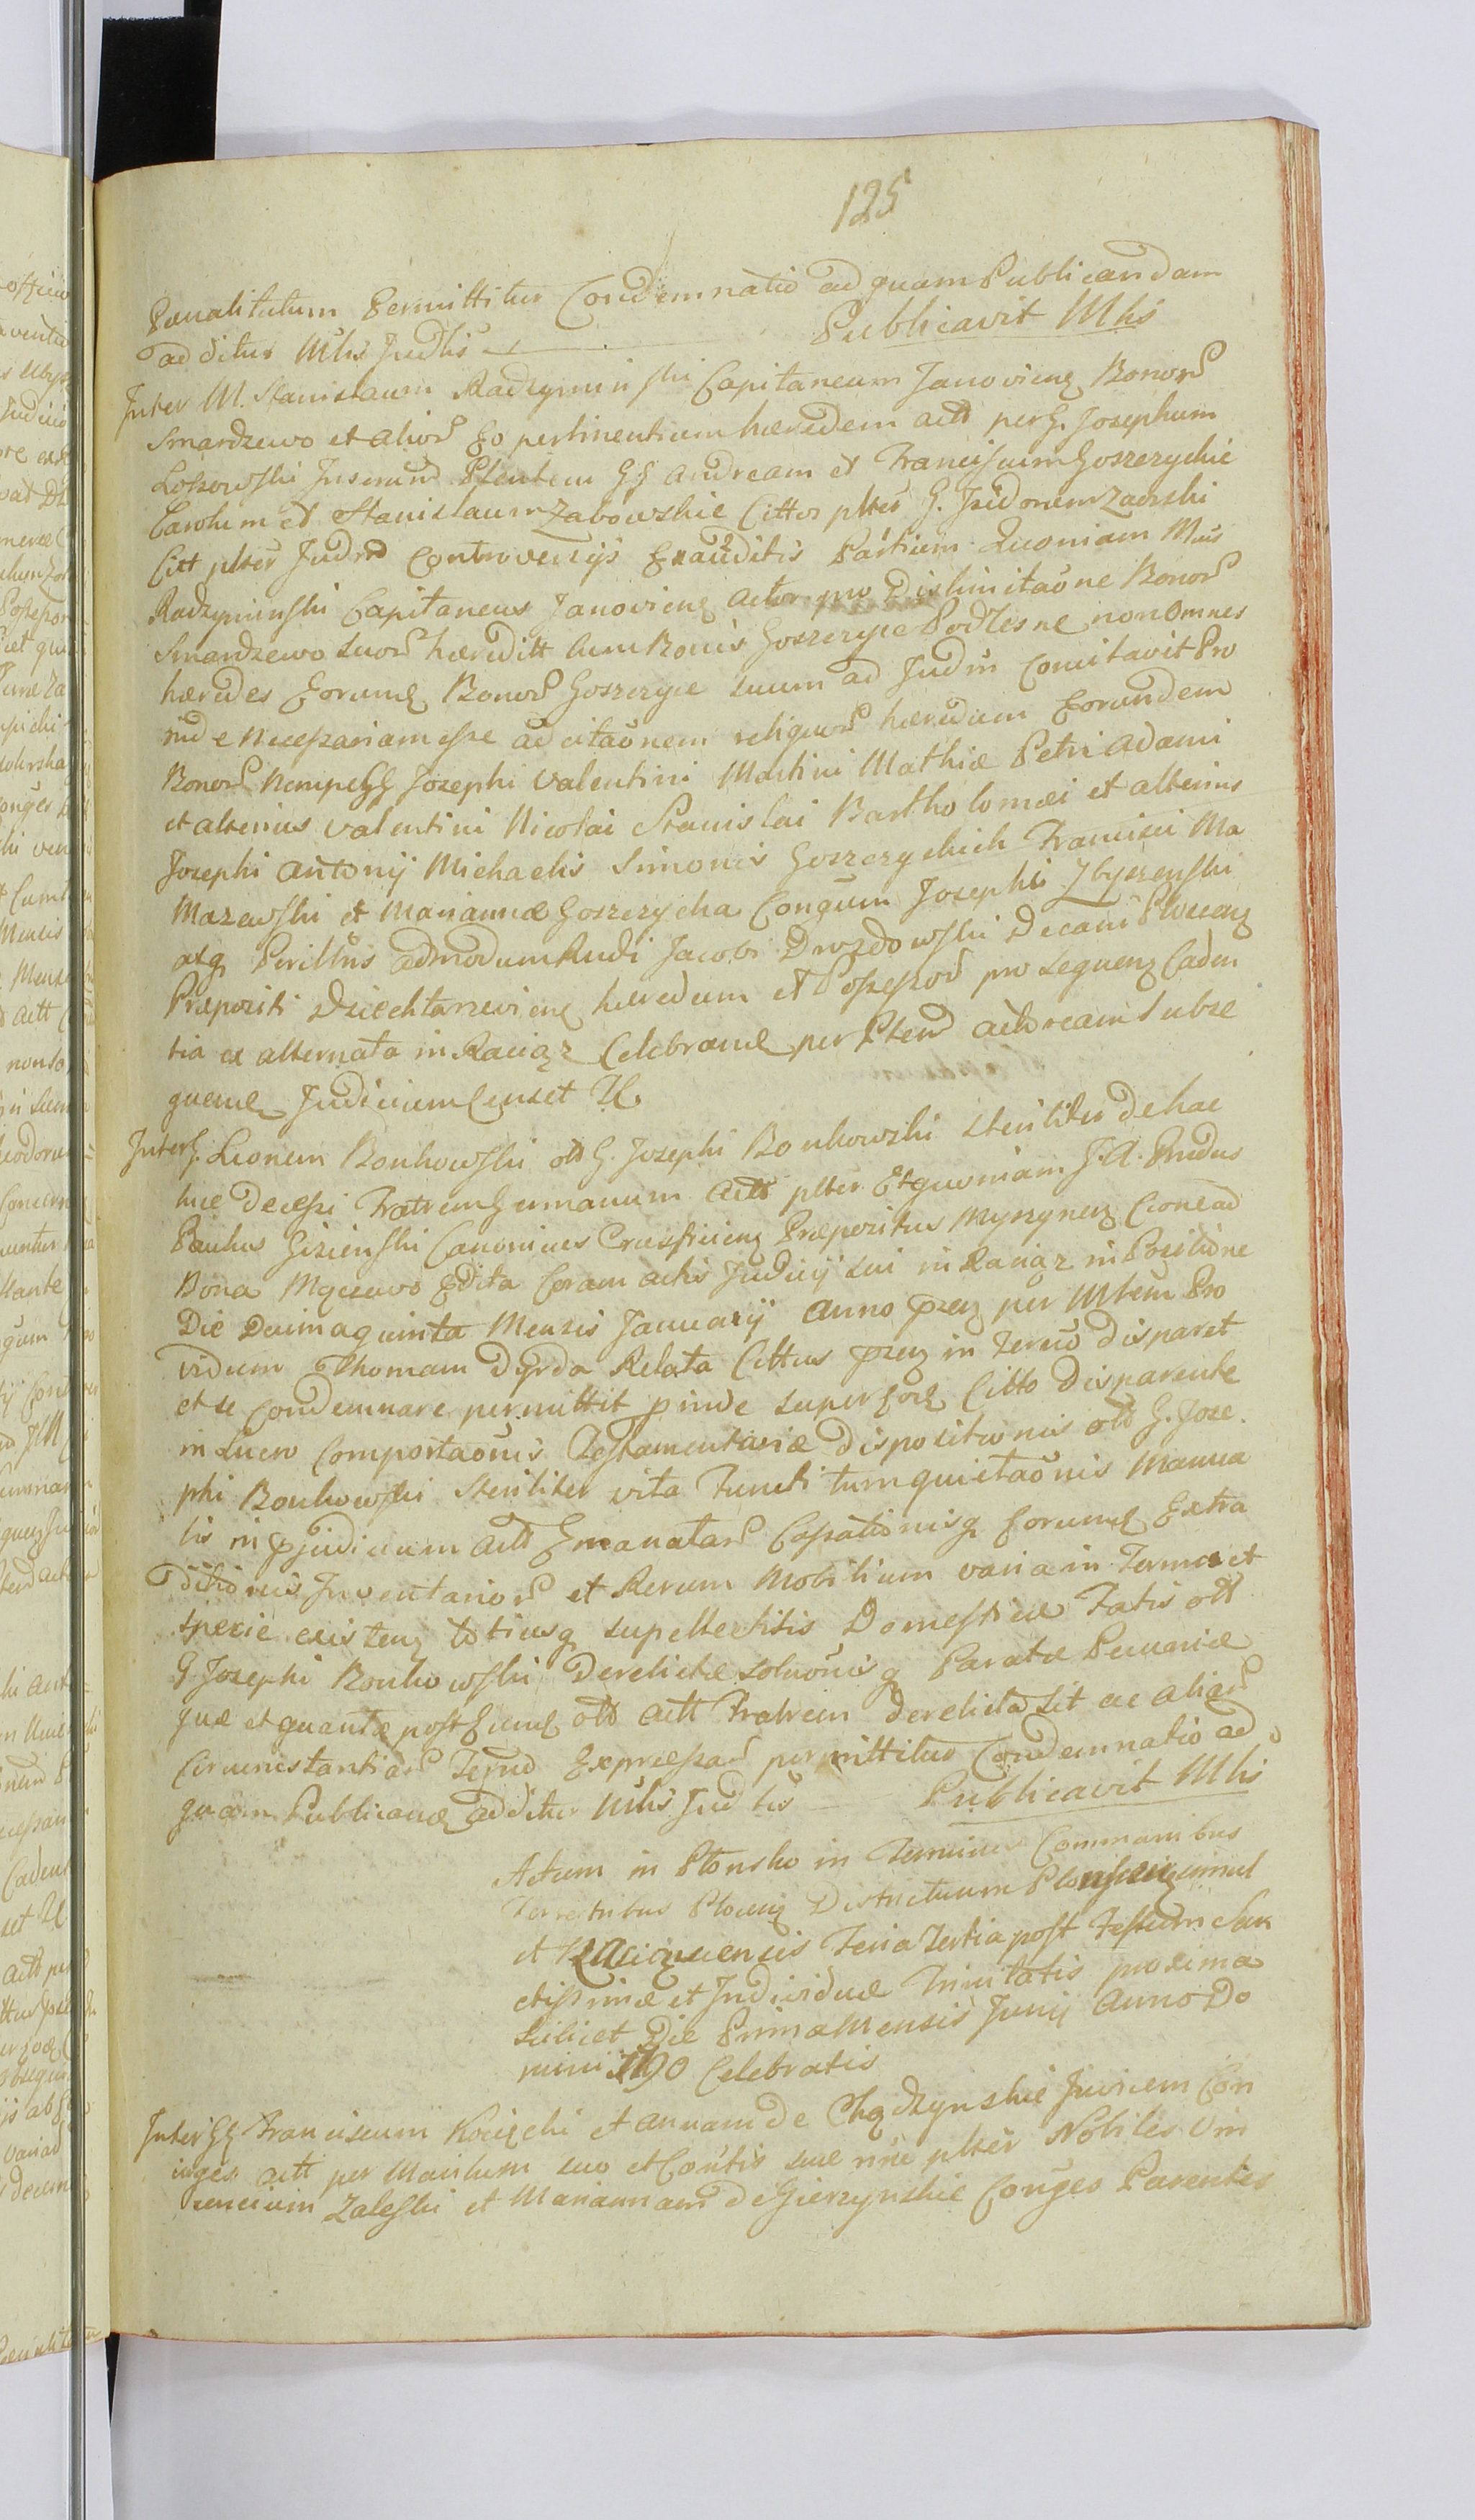 125
Pœnalitatum Permittitur Condemnatio ad quam Publicandam
additur Mlis Judlis Publicavit Mlis
Inter M. Stanislaum Radzyminski Capitaneum Janoviens Bonor
Smardzewo et alior Eo pertinentium hæredem actt per G. Josephum
Andream et Franciscum Goszczyckie
Carolum et Stanislaum Zabowskie Cittos plter G. Isidorem Zaorski
Citt plter Judrd Controversijs Exauditis Partium Quoniam Mcus
Radzyminski Capitaneus Janoviens actor pro Dislimitaone Bonor
Smardzewo suor hæreditt cum Bonis Goszczyce Podlesne non omnes
hæredes Eorumq Bonor Goszczyce suum ad Judm Concitavit Pro
inde necessariam esse adcitaonem reliquor hæredum Eorundem
Bonor Nempe GG Josephi Valentini Martini Mathiæ Petri Adami
et alterius Valentini Nicolai Stanislai Bartholomæi et alterius
Josephi Antonij Michaelis Simonis Goszczyckich Francisci Ma
Mazewski et Mariannæ Goszczycka Congum Josephi Zbyszenski
atq Perillris admodum Rndi Jacobi Drozdowski Decani Plocens
Præpositi hæredum et Possessor pro sequens Caden
tia ex alternata in Raciąz Celebrand per actoream subse
quend Judicium Censet
Inter G. Leonem Bonkowski ott G. Josephi Bonkowski steriliter de hac
luce decessi Fratrem Germanum actt plter Et quoniam J. A. Rndus
Paulus Gizienski Canonicus Crusficiens Præpositus Myszynens Cione ad
Bona Mącewo Edita Coram actis Judicij sui in Raciąz in Positione
Die Decima quinta Mensis Januarij Anno præs per Mtem Pro
vidum Thomam Dyrda Relata Cittus præs in Termo disparet
et se Condemnare permittit pinde super Eoq Citto disparente
in Lucro Comportaonis Testamentariæ dispositionis ott G. Jose
phi Bonkowski steriliter vita Functi tum quietaonis Manua
lis in pjudicium actt Emanatar Cassationisq Eorumq Extra
ditionis Inventarior et Rerum Mobilium varia in Forma et
specie existens totiusq supellectilis Domesticæ Fatis ott
G Josephi Bonkowski Derelictæ soluonisq Paratæ Pecuniæ
quæ et quanta post Eumq ott actt Fratrem derelicta sit ac aliar
Circumstantiar Termo Expressar permittitur Condemnatio ad
quam Publicand additur Mlis Judlis Publicavit Mlis
Actum in Płonsko in Terminis Communibus
Terrestribus Plocens Districtuum Plonscens simul
et Raciązensis Feria Tertia post Festum San
ctissimæ et Individuæ Trinitatis proxima
scilicet Die Prima Mensis Junij Anno Do
mini 1790 Celebratis
Inter GG Franciscum Kocięcki et Annam de Chądzynskie Invicem Con
iuges actt per Maritum suo et Contis suæ nne plter Nobiles Vin
cencium Zaleski et Mariannam de Gierzynskie Conges Parentes